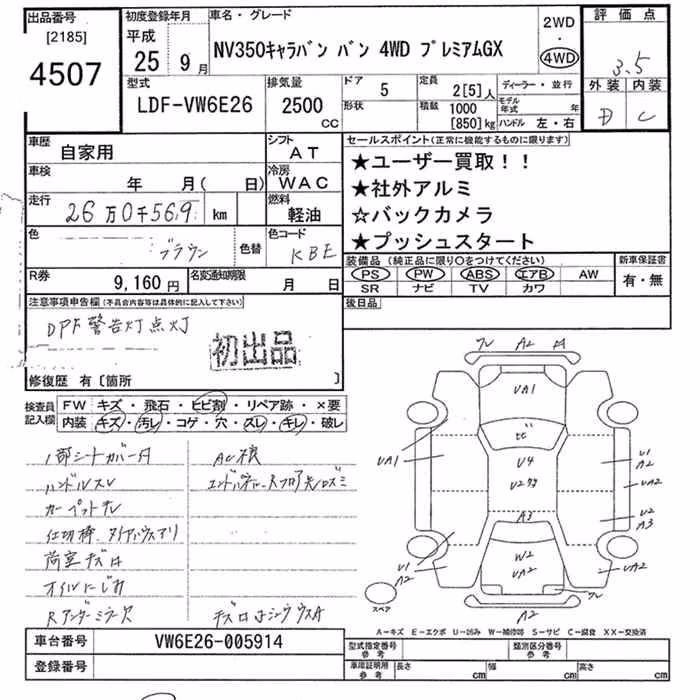 出品番号
[2185]
4507
初度登録年月
平成
25 9月
車名・グレード
NV350キャラバン バン 4WD プレミアムGX
2WD
・
4WD
評価点
3.5
外装 内装
D C
型式
LDF-VW6E26
排気量
2500
cc
ドア
5
形状
定員
2[5]人
積載
1000
[850]kg
ディーラー・並行
モデル年式 年
ハンドル 左・右
車歴
自家用
シフト
AT
車検
年 月( 日)
冷房
WAC
走行
26万0千569 km
燃料
軽油
色
ブラウン
色替
色コード
KBE
R券
9,160円
名変通知期限
月 日
セールスポイント(正常に機能するものに限ります)
★ユーザー買取!!
★社外アルミ
☆バックカメラ
★プッシュスタート
装備品(純正品に限り○をつけてください)
PS PW ABS エアB AW
SR ナビ TV カワ
新車保証書
有・無
後日品
注意事項申告欄(不具合内容等は具体的に記入して下さい)
DPF警告灯点灯
初出品
修復歴 有〔箇所 〕
検査員記入欄
FW キズ・飛石・ヒビ割・リペア跡・×要
内装 キズ・汚レ・コゲ・穴・スレ・キレ・破レ
ハンドルスレ
オイルにじみ
A2
UA1
UA1
U4
A3
W2
UA2
U1
A2
UA2
U2
A3
U1
A2
A2
スペア
A-キズ E-エクボ U-凹み W-補修跡 S-サビ C-腐食 XX-交換済
車台番号
VW6E26-005914
登録番号
型式指定番号
参考
類別区分番号
参考
車庫証明用
参考
長さ cm
幅 cm
高さ cm